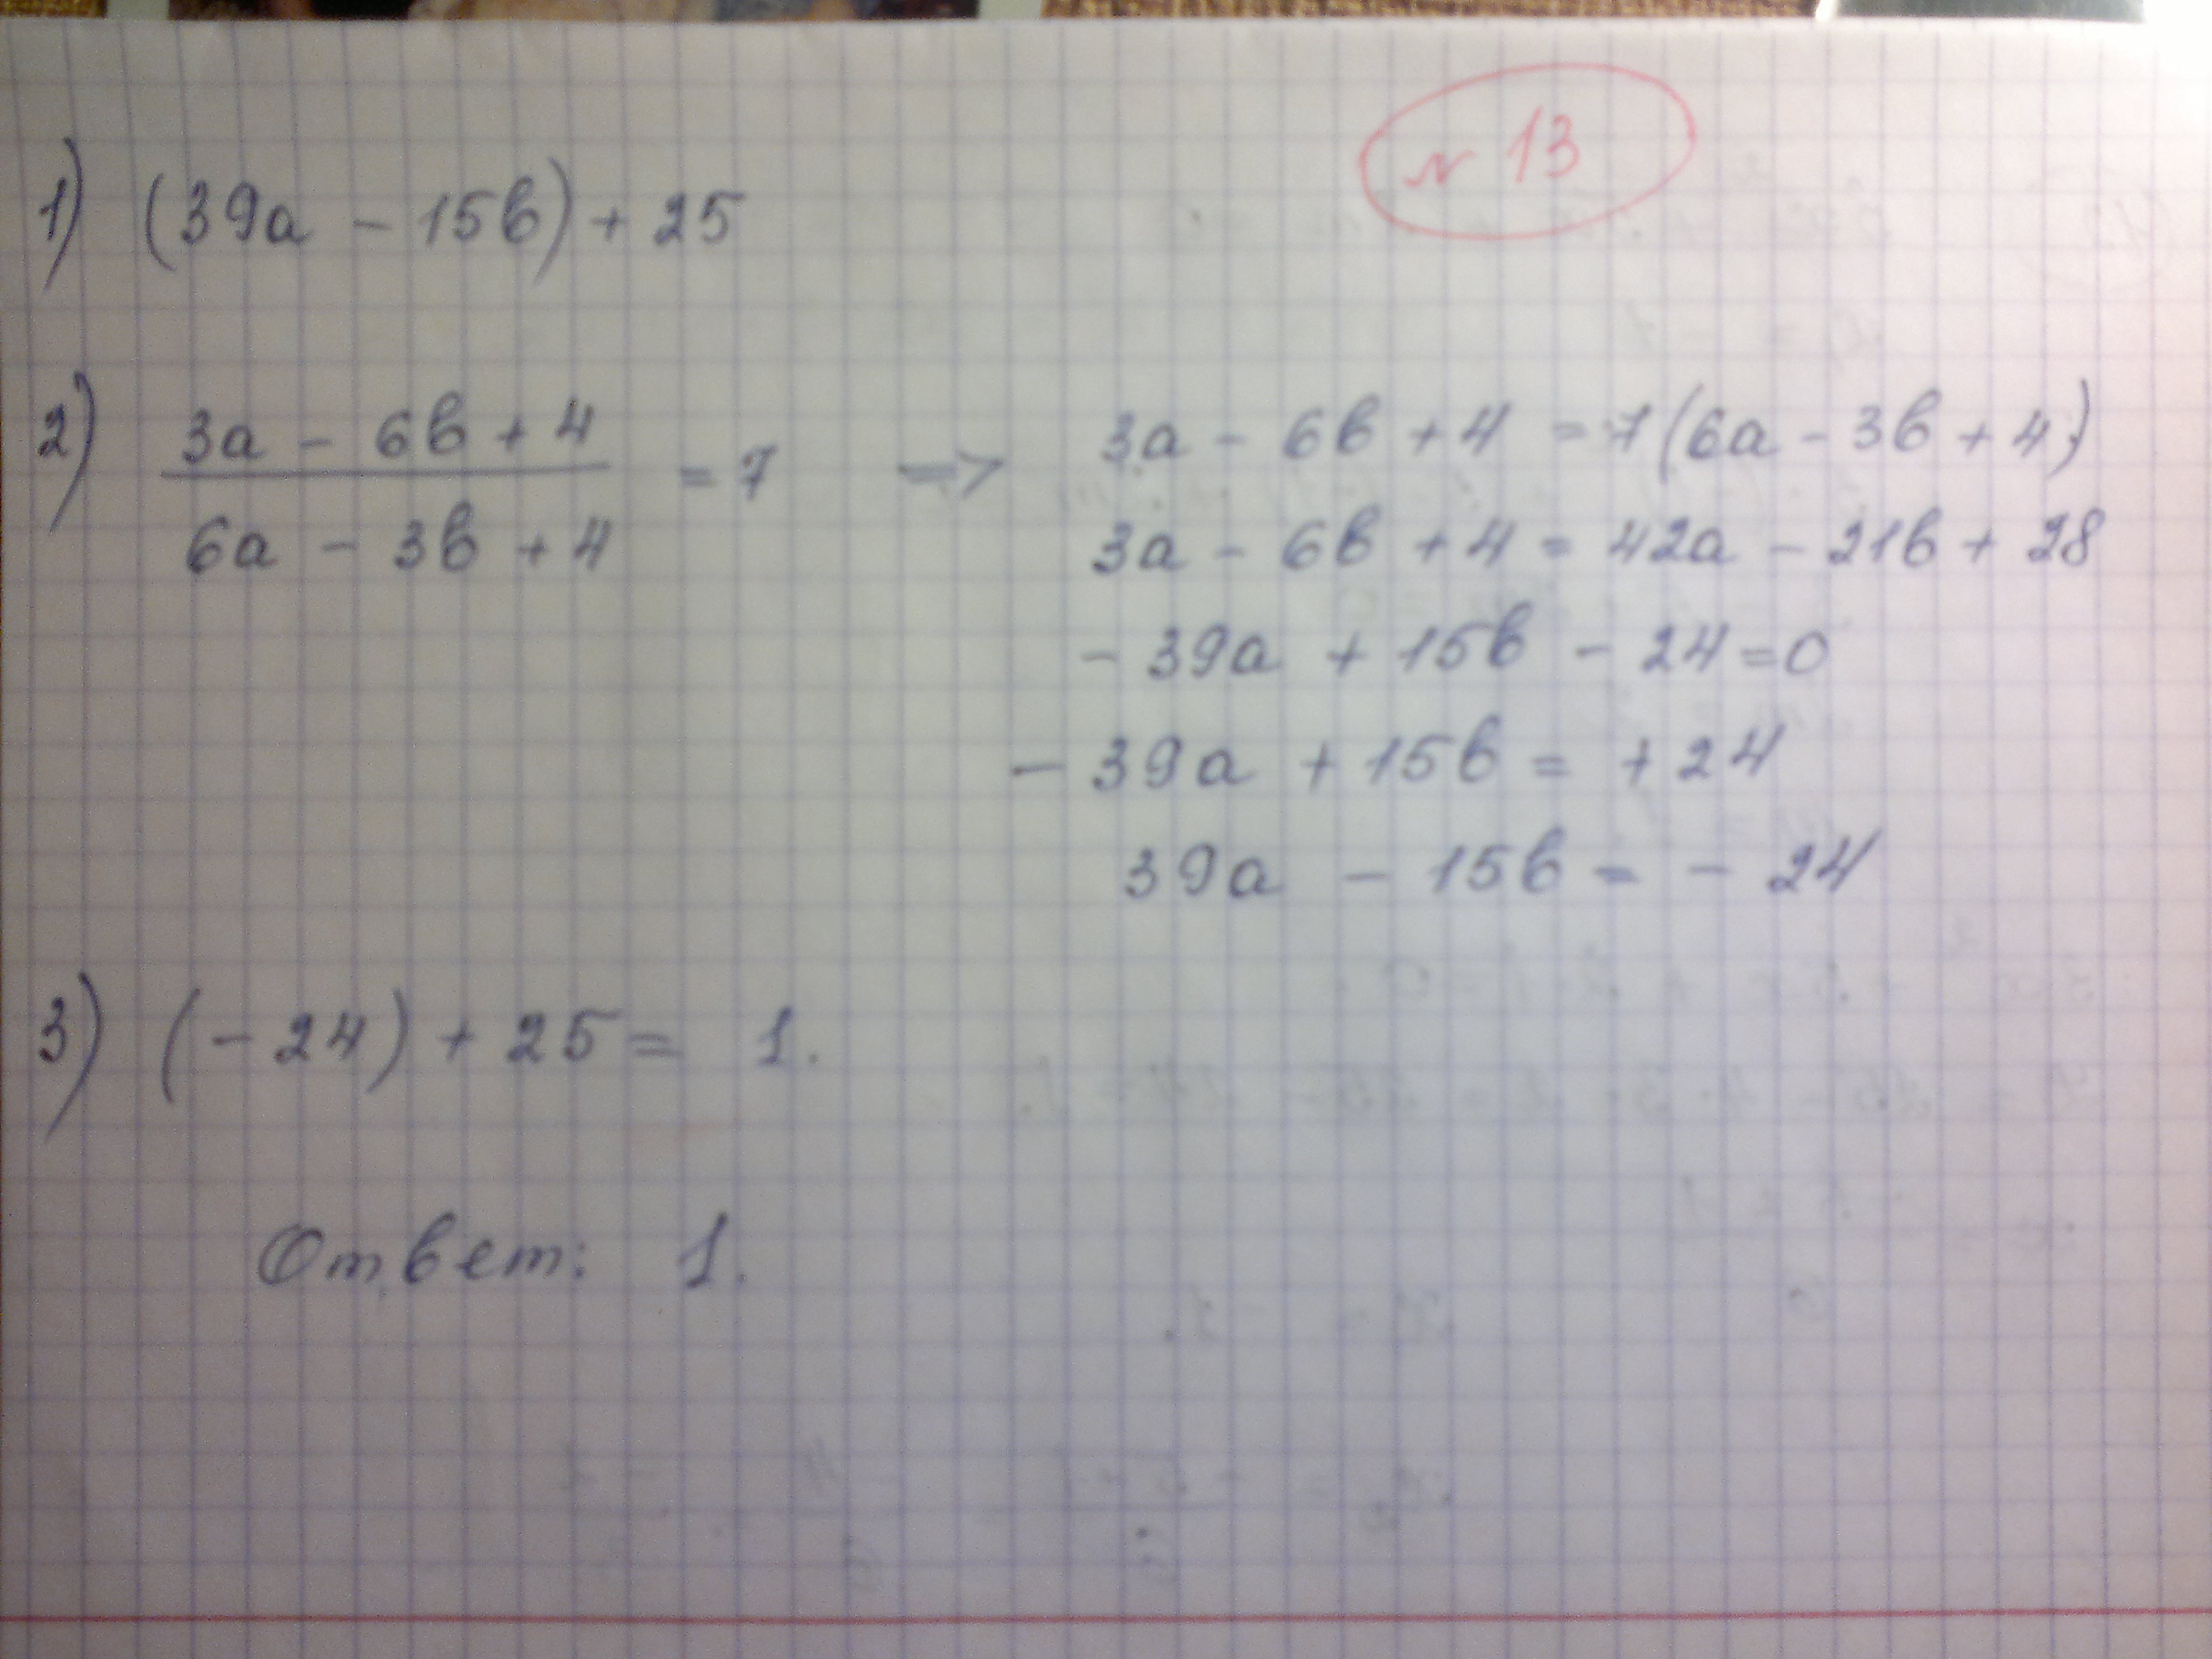 № 13
1) (39a - 15b) + 25
2) (3a - 6b + 4) / (6a - 3b + 4) = 7 => 3a - 6b + 4 = 7(6a - 3b + 4)
3a - 6b + 4 = 42a - 21b + 28
- 39a + 15b - 24 = 0
- 39a + 15b = + 24
39a - 15b = - 24
3) (- 24) + 25 = 1.
Ответ: 1.